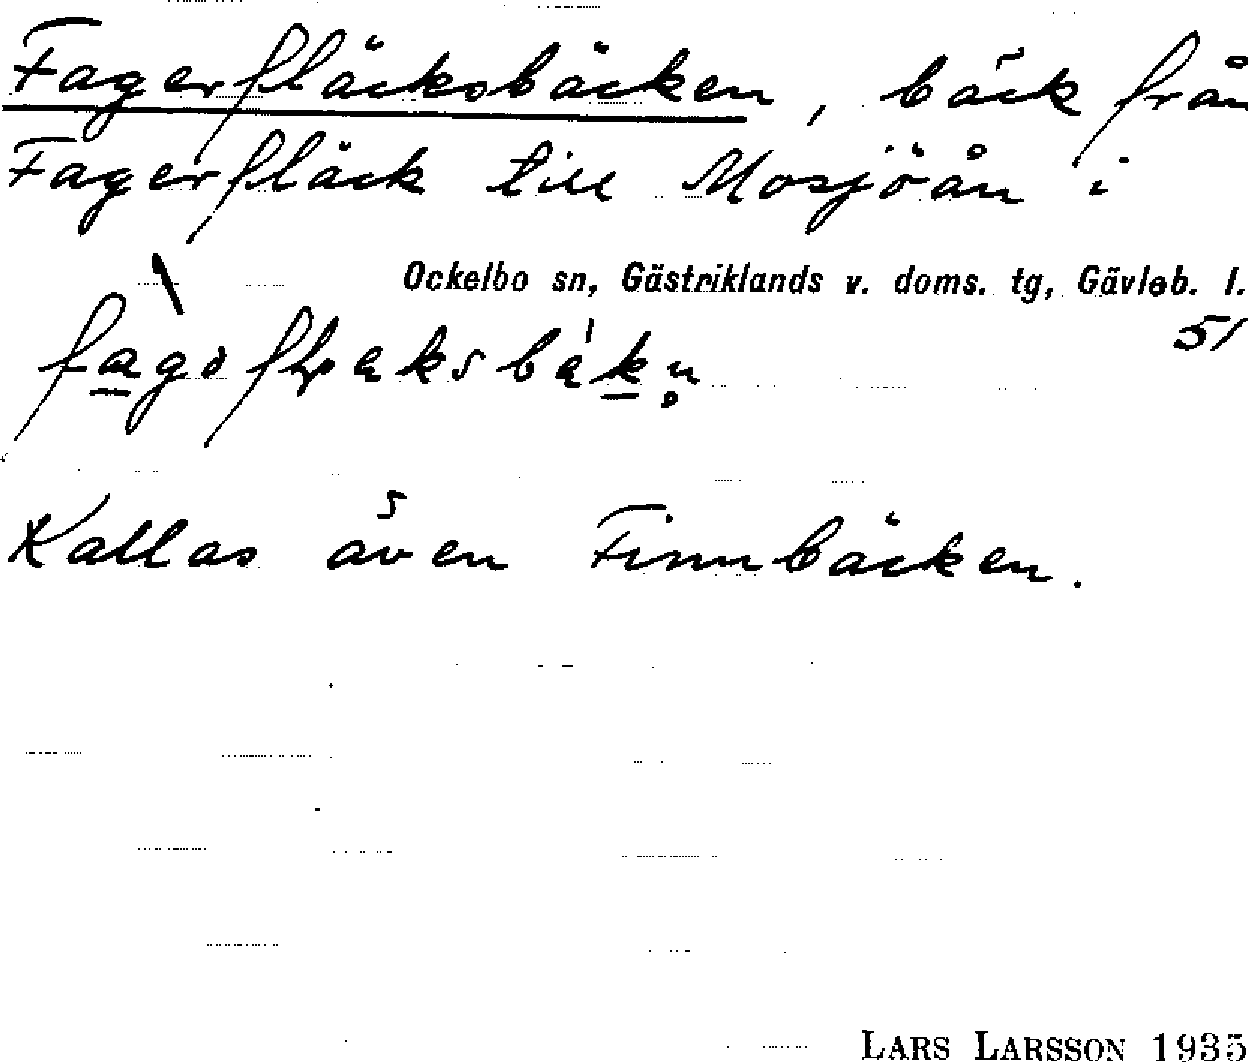 Fagerfläcksbäcken, bäck från
Fagerfläck till Mosjöån i
Ockelbo sn, Gästriklands v. doms. tg, Gävleb. l.
51
Kallas även Finnbäcken.
LARS LARSSON 1935